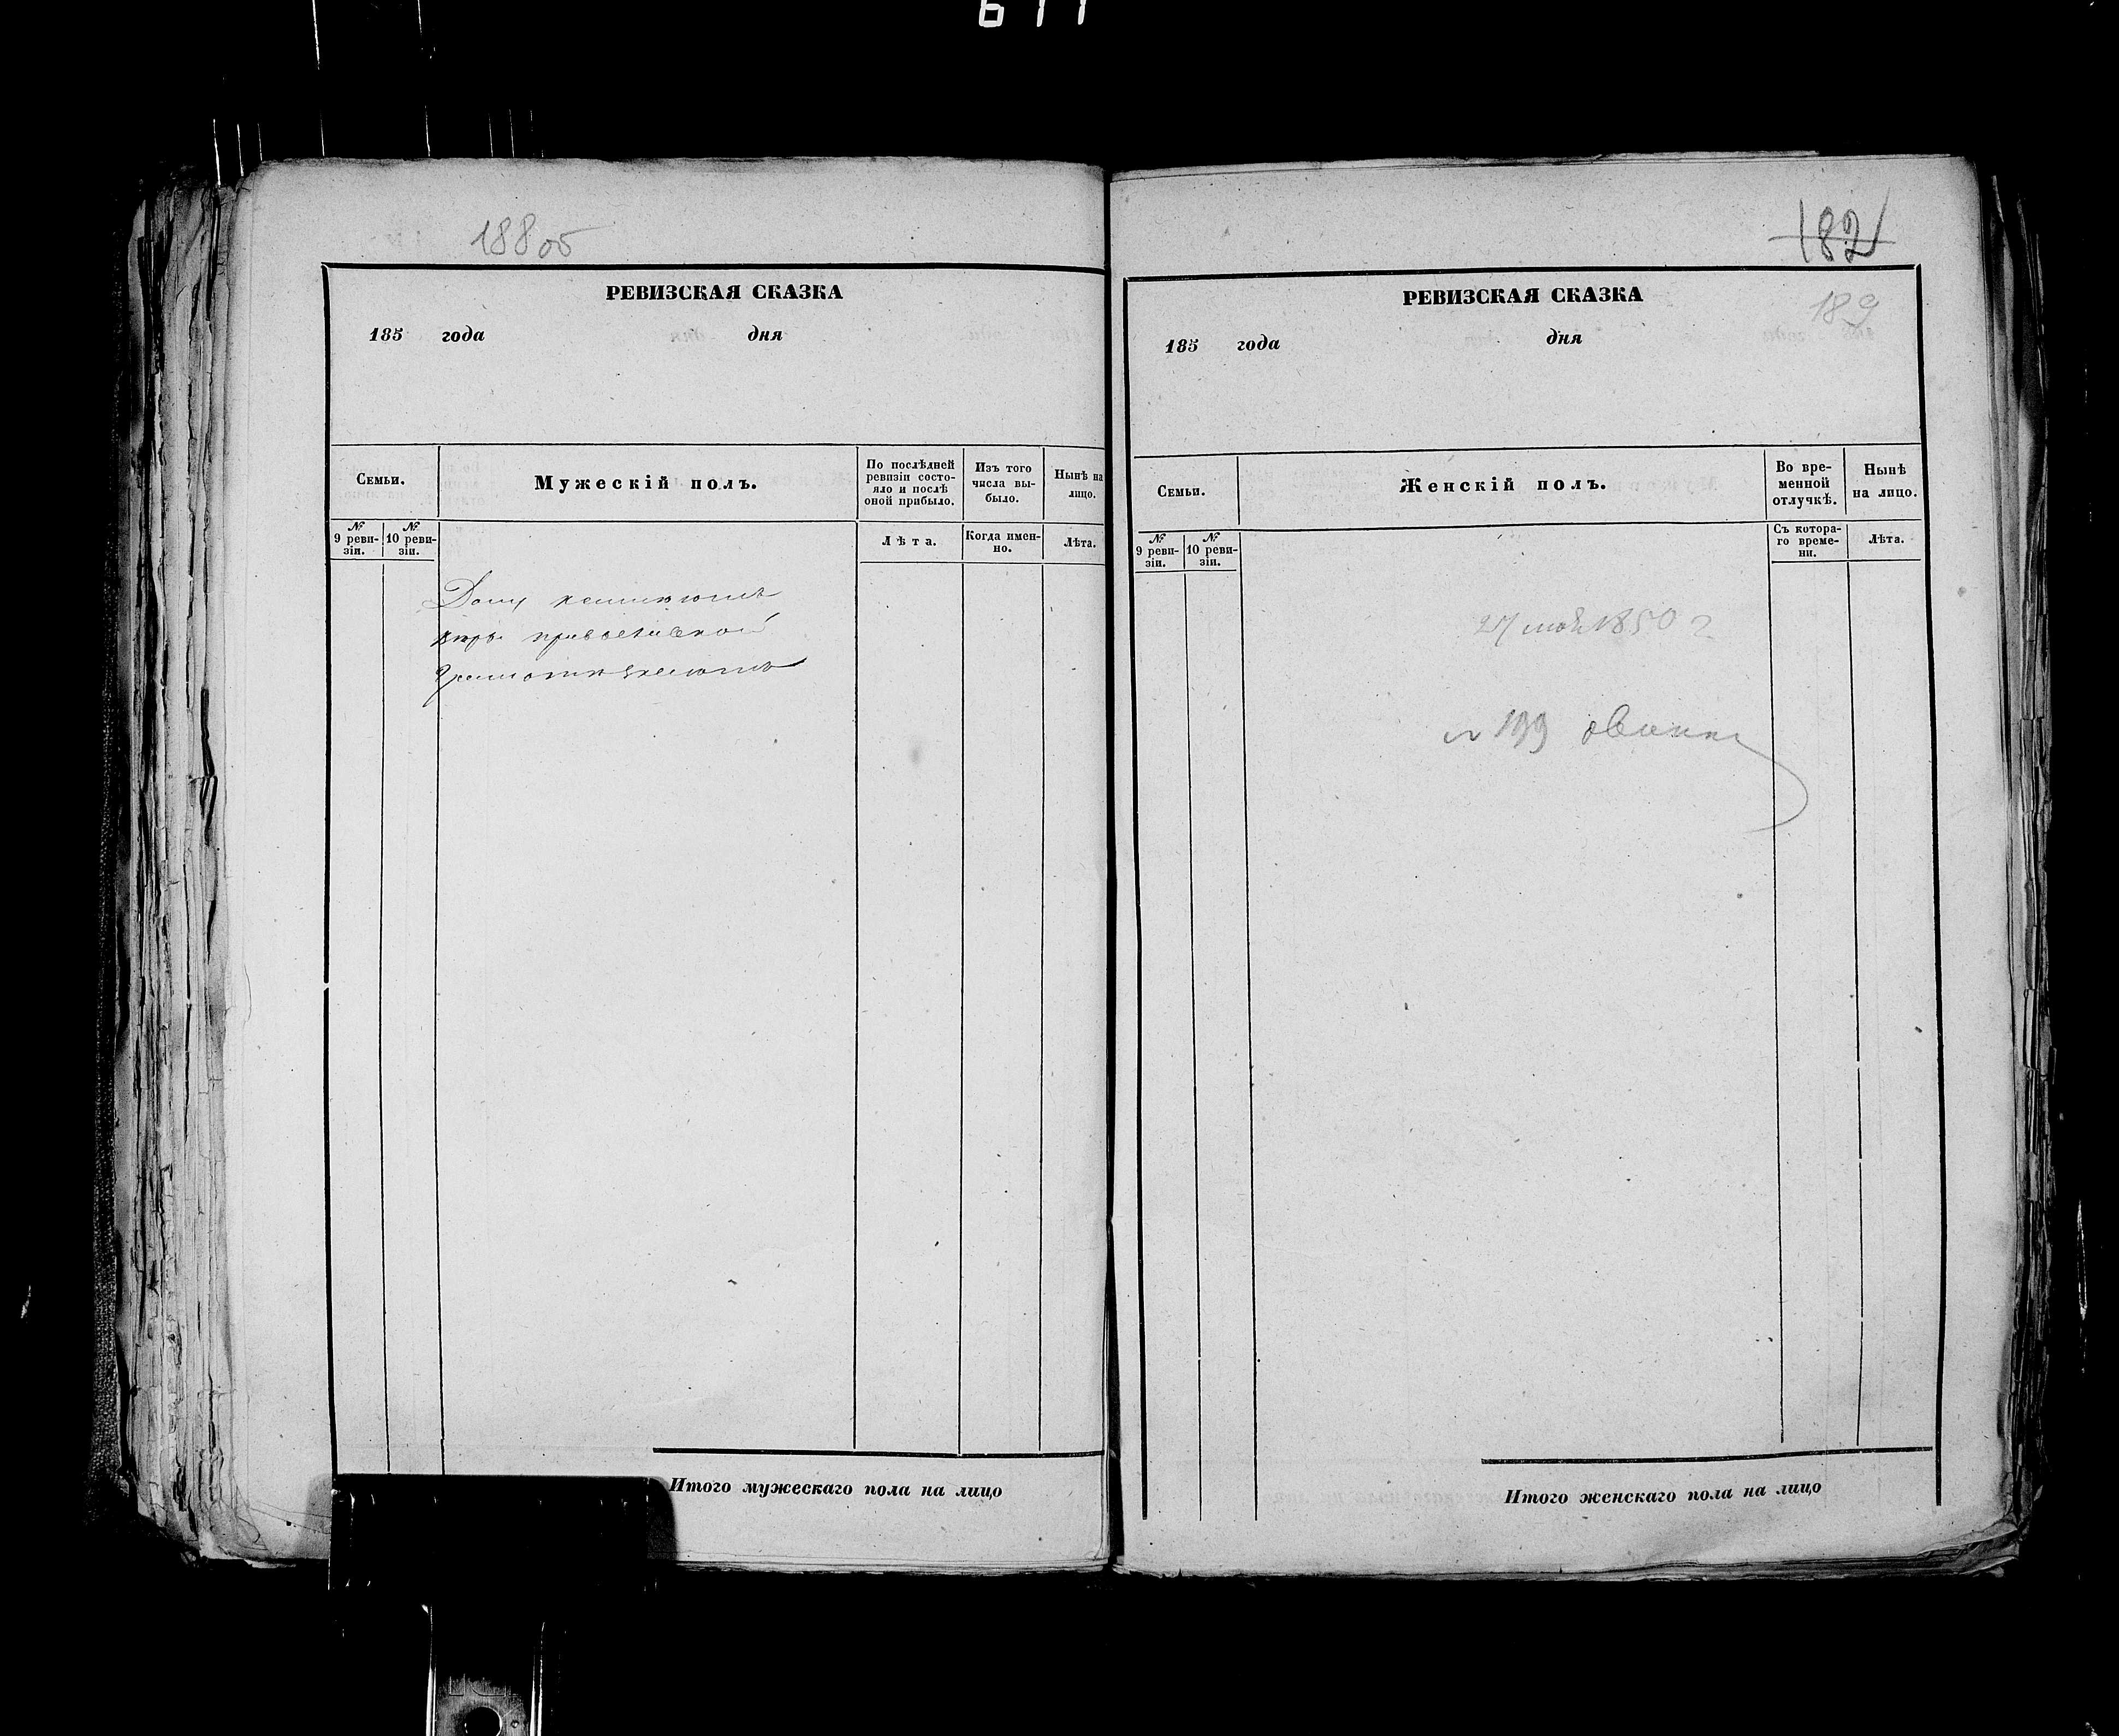 611
188об
РЕВИЗСКАЯ СКАЗКА
185 года дня
Семьи.
Мужескій полъ.
По послѣдней ревизіи состо-
яло и послѣ оной прибыло.
Изъ того числа вы-
было.
Нынѣ на лицо.
№ 9 реви-
зіи.
№ 10 реви-
зіи.
Лѣта.
Когда имен-
но.
Лѣта.
Итого мужескаго пола на лицо
182
189
РЕВИЗСКАЯ СКАЗКА
185 года дня
Семьи.
Женскій полъ.
Во вре-
менной
отлучкѣ.
Нынѣ
на лицо.
№ 9 реви-
зіи.
№ 10 реви-
зіи.
Съ котора-
го време-
ни.
Лѣта.
1850 г
Итого женскаго пола на лицо